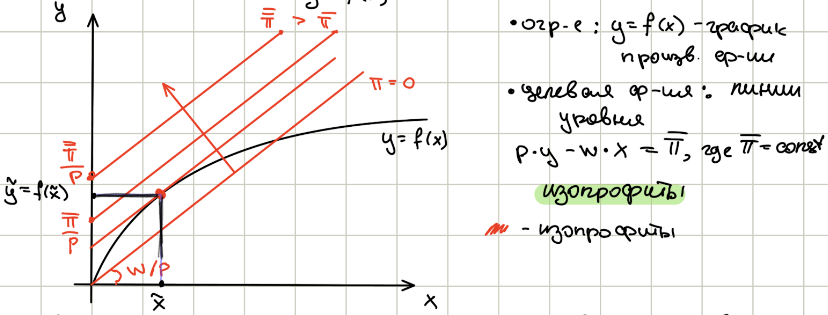 y
π̿ > π̅
π = 0
y = f(x)
π̿/p
ỹ = f(x̃)
π̅/p
w/p
x̃
x
• огр-е : y = f(x) - график
произв. ф-ии
• целевая ф-ия : линии
уровня
p·y - w·x = π̅, где π̅ = const
изопрофиты
- изопрофиты